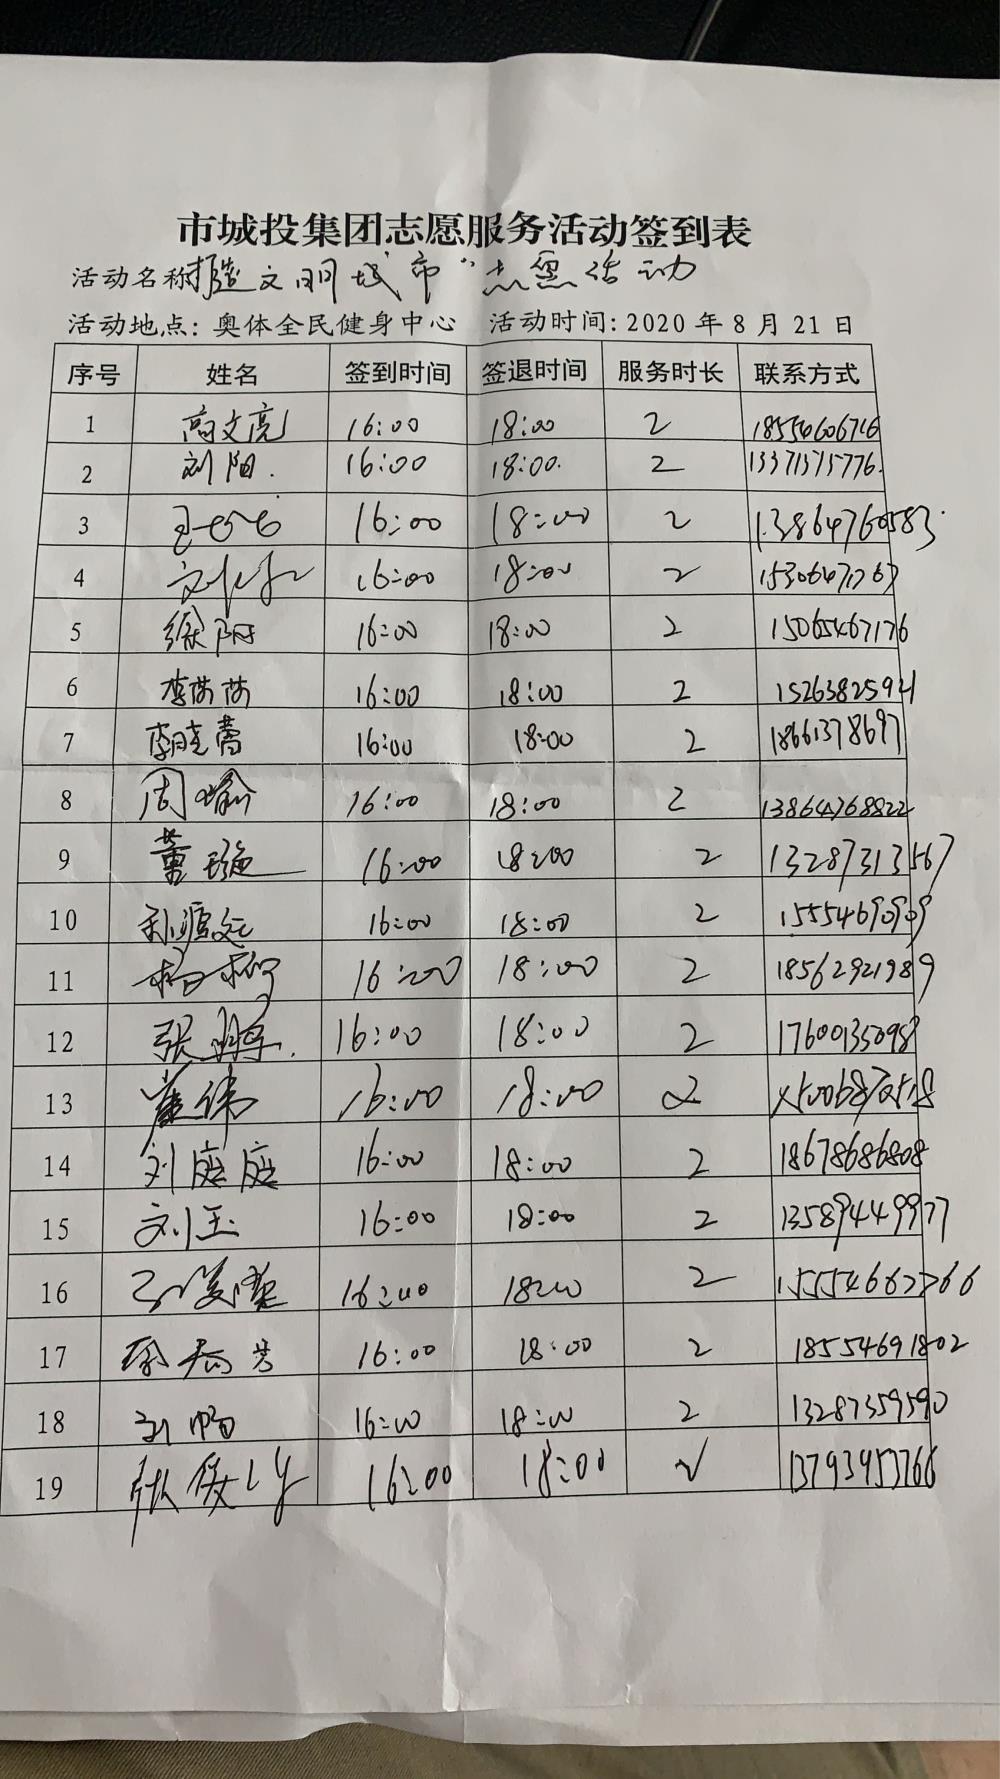 市城投集团志愿服务活动签到表
活动名称 打造文明城市"志愿活动
活动地点：奥体全民健身中心 活动时间：2020 年 8 月 21 日
序号 姓名 签到时间 签退时间 服务时长 联系方式
1 高文亮 16:00 18:00 2 18554606716
2 刘阳. 16:00 18:00. 2 13371575776.
3 16:00 18:00 2 13864760583.
4 16:00 18:00 2
5 徐阳 16:00 18:00 2 15065467176
6 李苗苗 16:00 18:00 2 15263825941
7 李晓蕾 16:00 18:00 2 18661378697
8 周瑜 16:00 18:00 2 13864768822
9 董璇 16:00 18:00 2 13287313567
10 孙源远 16:00 18:00 2 15554690909
11 杨柳 16:00 18:00 2 18562921989
12 张鹏军. 16:00 18:00 2 17600135098
13 崔伟 16:00 18:00 2
14 刘庭庭 16:00 18:00 2 18678686808
15 刘玉 16:00 18:00 2 13589444977
16 16:00 18:00 2 15554667766
17 16:00 18:00 2 18554691802
18 刘畅 16:00 18:00 2 13287359590
19 16:00 18:00 √ 13793953766